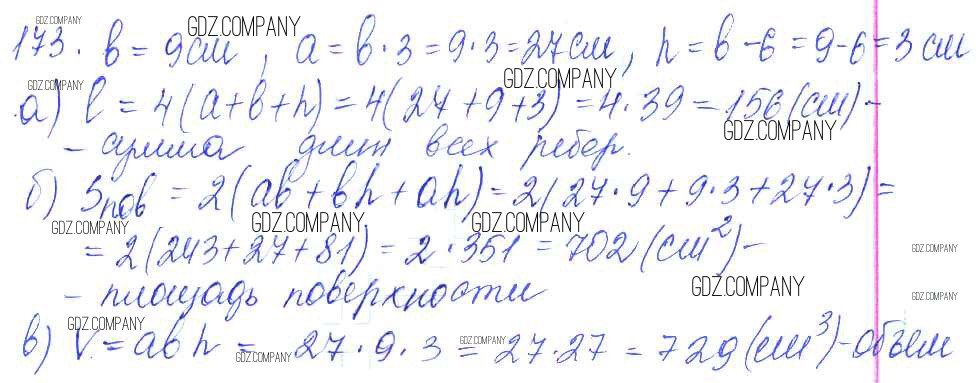 173. b = 9 см, a = b · 3 = 9 · 3 = 27 см, h = b - 6 = 9 - 6 = 3 см
а) l = 4(a + b + h) = 4(27 + 9 + 3) = 4 · 39 = 156 (см) -
- сумма длин всех ребер.
б) Sпов = 2(ab + bh + ah) = 2(27 · 9 + 9 · 3 + 27 · 3) =
= 2(243 + 27 + 81) = 2 · 351 = 702 (см²) -
- площадь поверхности
в) V = abh = 27 · 9 · 3 = 27 · 27 = 729 (см³) - объем
GDZ.COMPANY
GDZ.COMPANY
GDZ.COMPANY
GDZ.COMPANY
GDZ.COMPANY
GDZ.COMPANY
GDZ.COMPANY
GDZ.COMPANY
GDZ.COMPANY
GDZ.COMPANY
GDZ.COMPANY
GDZ.COMPANY
GDZ.COMPANY
GDZ.COMPANY